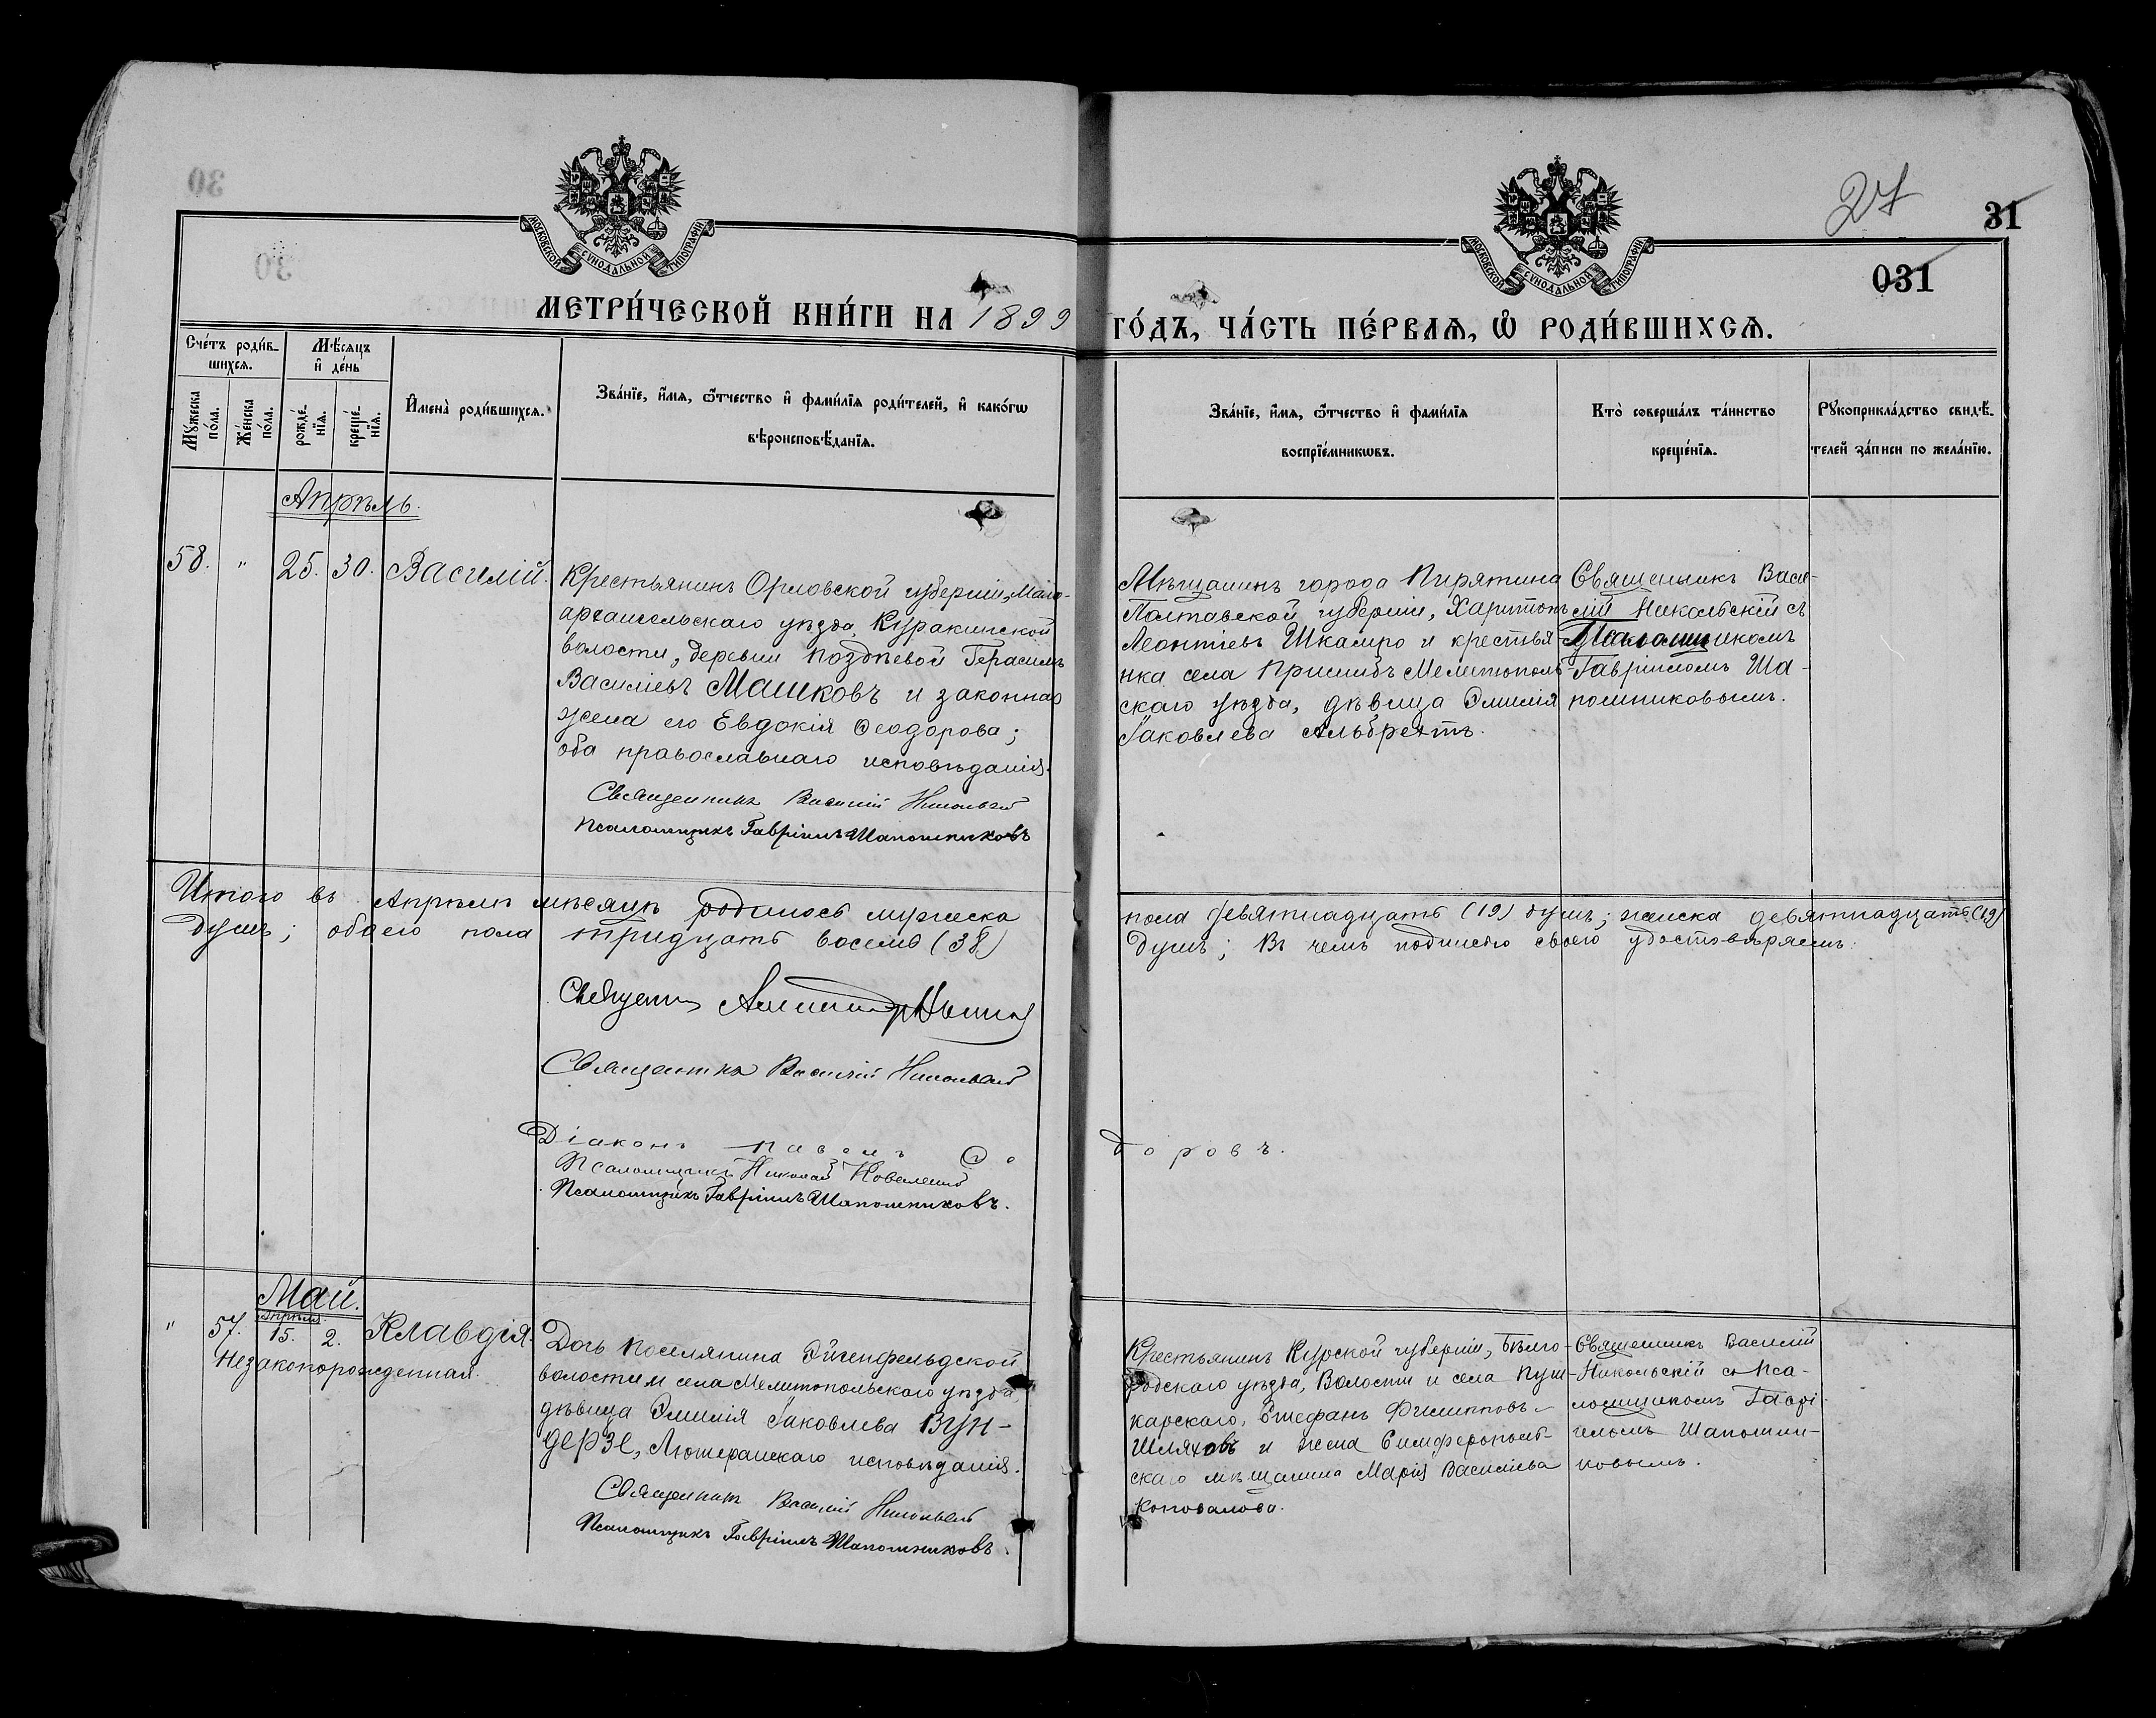 27
31
031
30
30
МОСКОВСКОЙ СѴНОДАЛЬНОЙ ТИПОГРАФІИ
МОСКОВСКОЙ СѴНОДАЛЬНОЙ ТИПОГРАФІИ
МЕТРИ́ЧЕСКОЙ КНИ́ГИ НА 1899 ГО́ДЪ, ЧА́СТЬ ПЕ́РВАѦ, Ѡ҆ РОДИ́ВШИХСѦ.
Сче́тъ роди́в-
шихсѧ.
Мꙋ́жеска по́ла.
Же́нска по́ла.
Мѣ́сѧцъ
и҆ де́нь
рожде́-
нїѧ.
креще́-
нїѧ.
И҆мена̀ роди́вшихсѧ.
Зва́нїе, и҆́мѧ, ѻ҆́тчество и҆ фами́лїѧ роди́телей, и҆ како́гѡ
вѣроисповѣ́данїѧ.
Зва́нїе, и҆́мѧ, ѻ҆́тчество и҆ фами́лїѧ
воспрїе́мникѡвъ.
Кто̀ соверша́лъ та́инство
креще́нїѧ.
Рꙋкоприкла́дство свидѣ́-
телей за́писи по жела́нїю.
Апрѣль.
58. " 25. 30. Василій.
Крестьянинъ Орловской губерніи, Мало-
архангельскаго уѣзда, Куракинской
волости, деревни Поздѣевой Герасимъ
Васильевъ Машковъ и законная
жена его Евдокія Ѳеодорова;
оба православнаго исповѣданія.
Священникъ Василій Никольскій
Псаломщикъ Гавріилъ Шапошниковъ
Мѣщанинъ города Пирятина
Полтавской губерніи, Харитонъ
Леонтіевъ Шкапро и крестья-
нка села Пришибъ Мелитополь-
скаго уѣзда, дѣвица Эмилія
Іаковлева Альбрехтъ.
Священникъ Васи-
лій Никольскій съ
Псаломщикомъ
Гавріиломъ Ша-
пошниковымъ.
Итого въ Апрѣлѣ мѣсяцѣ родилось мужеска пола девятнадцать (19) душъ; женска девятнадцать (19)
душъ; обоего пола тридцать восемь (38) душъ; Въ чемъ подписью своею удостовѣряемъ:
Священникъ
Священникъ Василій Никольскій
Діаконъ Павелъ Ѳедоровъ.
Псаломщикъ Николай
Псаломщикъ Гавріилъ Шапошниковъ.
Май.
Апрѣля
" 57. 15. 2. Клавдія.
Незаконорожденная.
Дочь поселянина Эйгенфельдской
волости и села Мелитопольскаго уѣзда,
дѣвица Эмилія Іаковлева Вун-
дерзе, Лютеранскаго исповѣданія.
Священникъ Василій Никольскій
Псаломщикъ Гавріилъ Шапошниковъ.
Крестьянинъ Курской губерніи, Бѣлго-
родскаго уѣзда, Волости и села Пуш-
карскаго, Стефанъ Филипповъ
Шляховъ и жена Симферополь-
скаго мѣщанина Марія Василіева
Коновалова.
Священникъ Василій
Никольскій съ Пса-
ломщикомъ Гаврі-
иломъ Шапошни-
ковымъ.